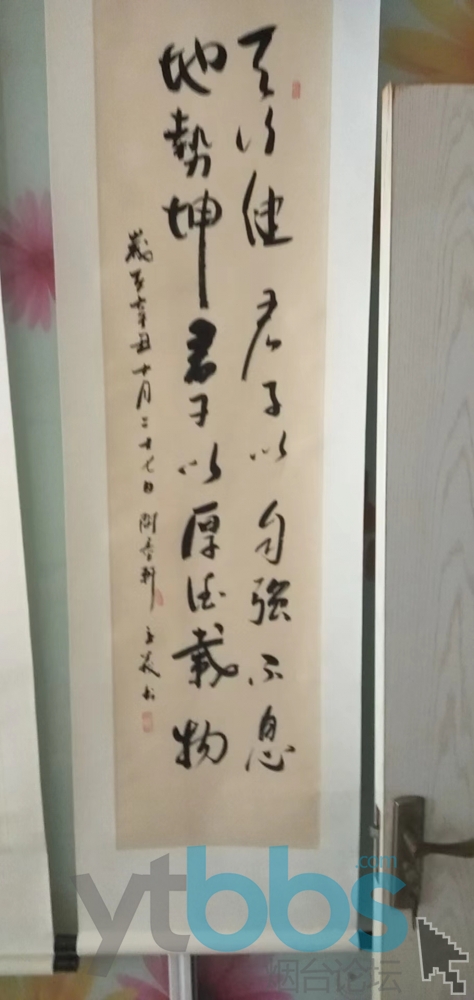 天行健君子以自强不息
地势坤君子以厚德载物
岁在辛丑十月二十七日闻香轩
书
ytbbs.com
烟台论坛